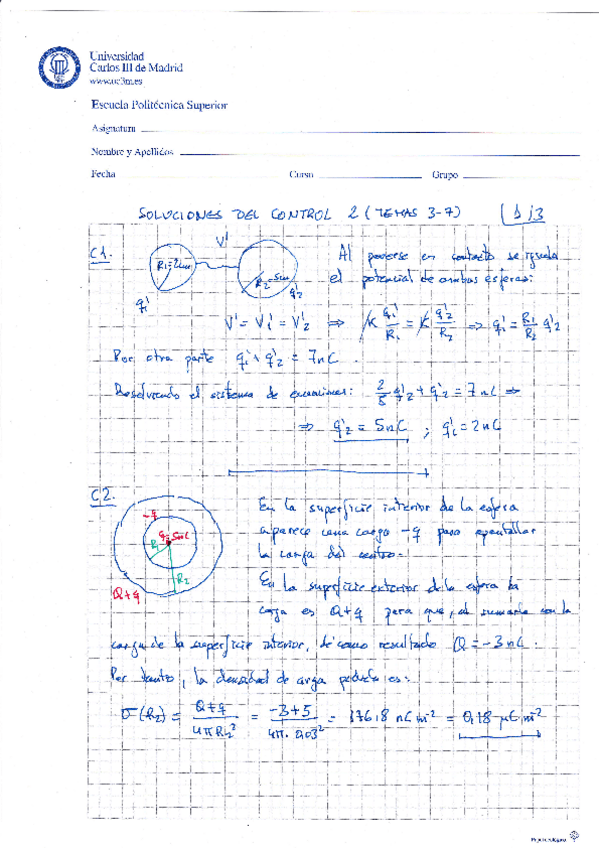 Universidad
Carlos III de Madrid
www.uc3m.es
Escuela Politécnica Superior
Asignatura
Nombre y Apellidos
Fecha Curso Grupo
SOLUCIONES DEL CONTROL 2 (TEMAS 3-7) 1/3
C1.
V'
R1=2cm
R2=5cm
q'1
q'2
Al ponerse en contacto se iguala
el potencial de ambas esferas:
V' = V'1 = V'2 ⇒ K q'1/R1 = K q'2/R2 ⇒ q'1 = R1/R2 q'2
Por otra parte q'1 + q'2 = 7nC.
Resolviendo el sistema de ecuaciones: 2/5 q'2 + q'2 = 7nC ⇒
⇒ q'2 = 5nC ; q'1 = 2nC
C2.
-q
q=5nC
R1
R2
Q+q
En la superficie interior de la esfera
aparece una carga -q para apantallar
la carga del centro.
En la superficie exterior de la esfera la
carga es Q+q para que, al sumarla con la
carga de la superficie interior, dé como resultado Q = -3 nC.
Por tanto, la densidad de carga pedida es:
σ(R2) = Q+q / 4πR2² = -3+5 / 4π·0,03² = 176,8 nC m⁻² = 0,18 μC m⁻²